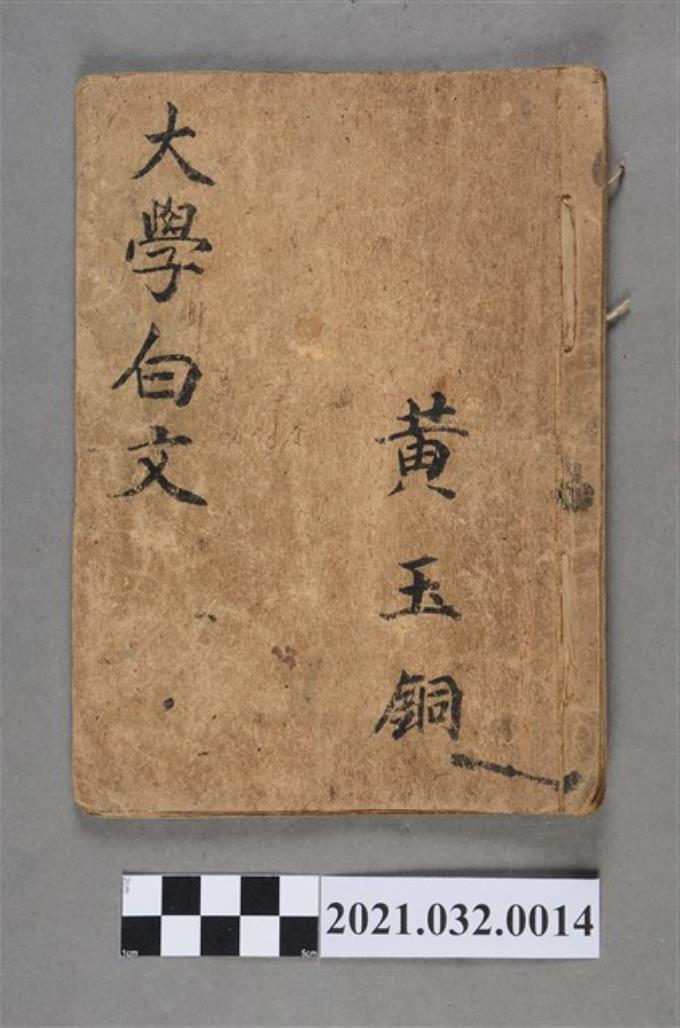 大學白文
黄玉銅
2021.032.0014
1cm
5cm